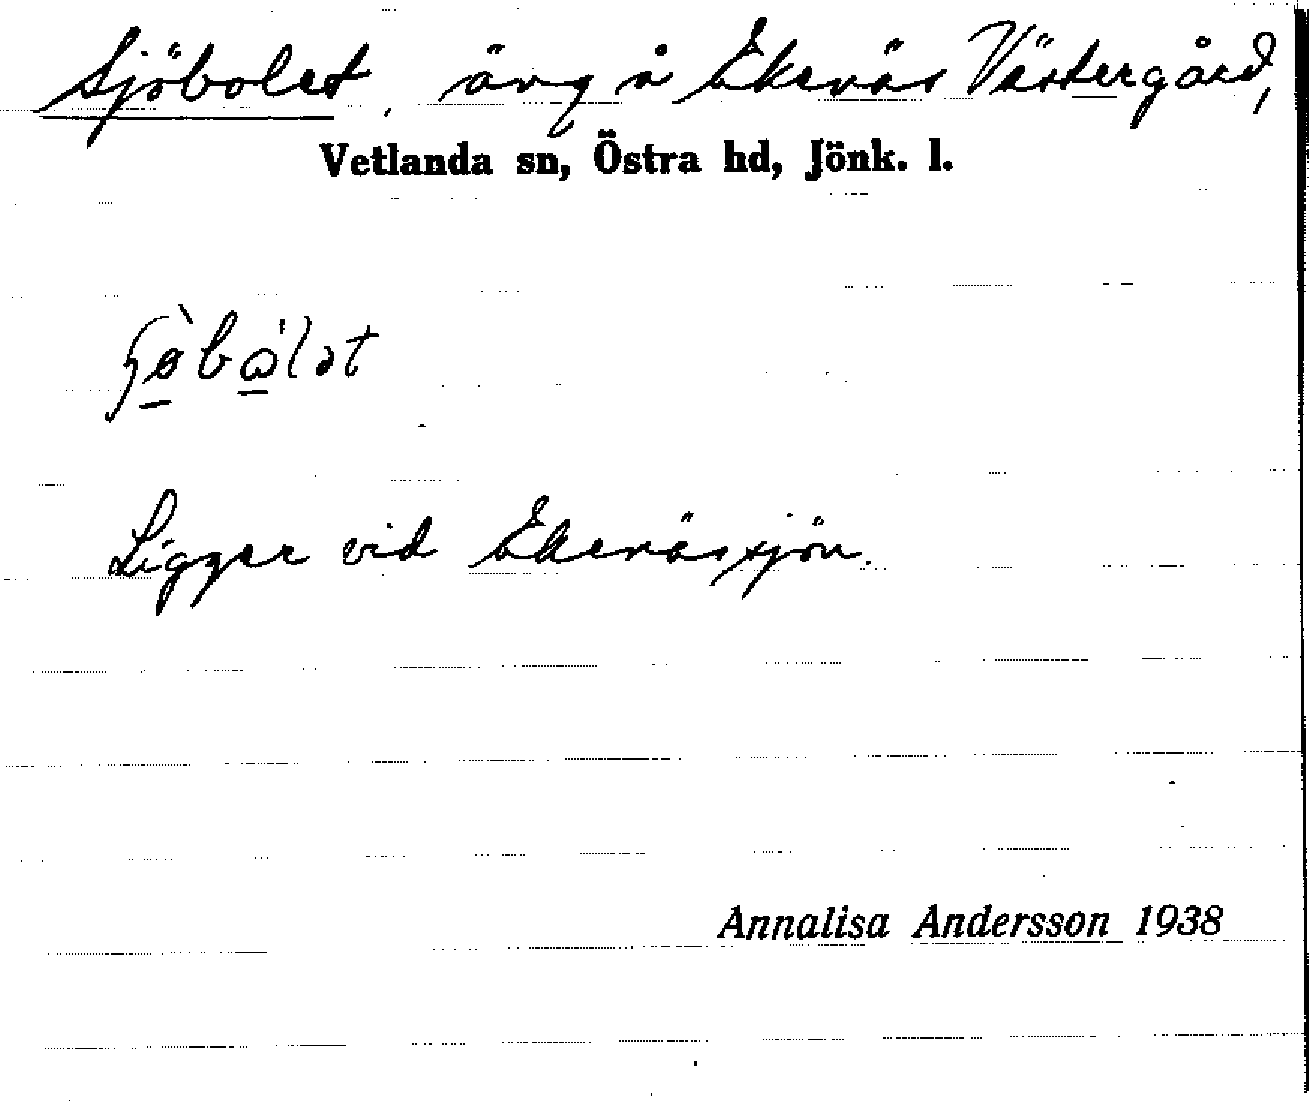 Sjöbolet, äng å Ekenäs Västergård,
Vetlanda sn, Östra hd, Jönk. l.
Ligger vid Ekenässjön.
Annalisa Andersson 1938